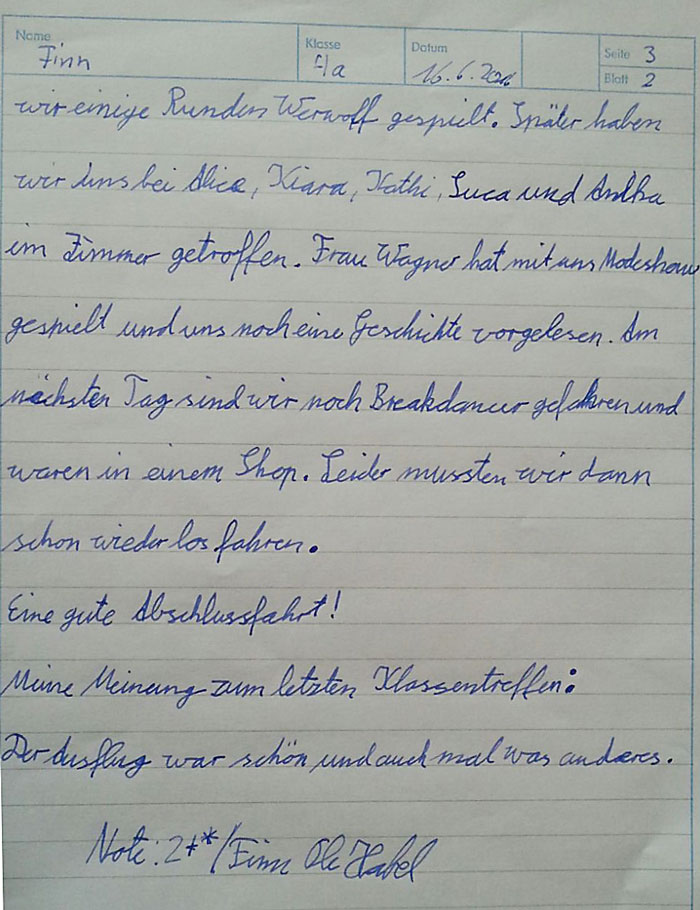 Name Finn Klasse 4a Datum 16.6.2016 Seite 3
Blatt 2
wir einige Runden Werwolf gespielt. Später haben
wir uns bei Alice, Kiara, Kathi, Luca und Anika
im Zimmer getroffen. Frau Wagner hat mit uns Modeshow
gespielt und uns noch eine Geschichte vorgelesen. Am
nächsten Tag sind wir noch Breakdancer gefahren und
waren in einem Shop. Leider mussten wir dann
schon wieder los fahren.
Eine gute Abschlussfahrt!
Meine Meinung zum letzten Klassentreffen:
Der Ausflug war schön und auch mal was anderes.
Note: 2+* / Finn Ole Habel